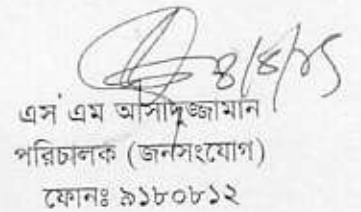 ৪/৪/২১
এস এম আসাদুজ্জামান
পরিচালক (জনসংযোগ)
ফোনঃ ৯১৮০৮১২